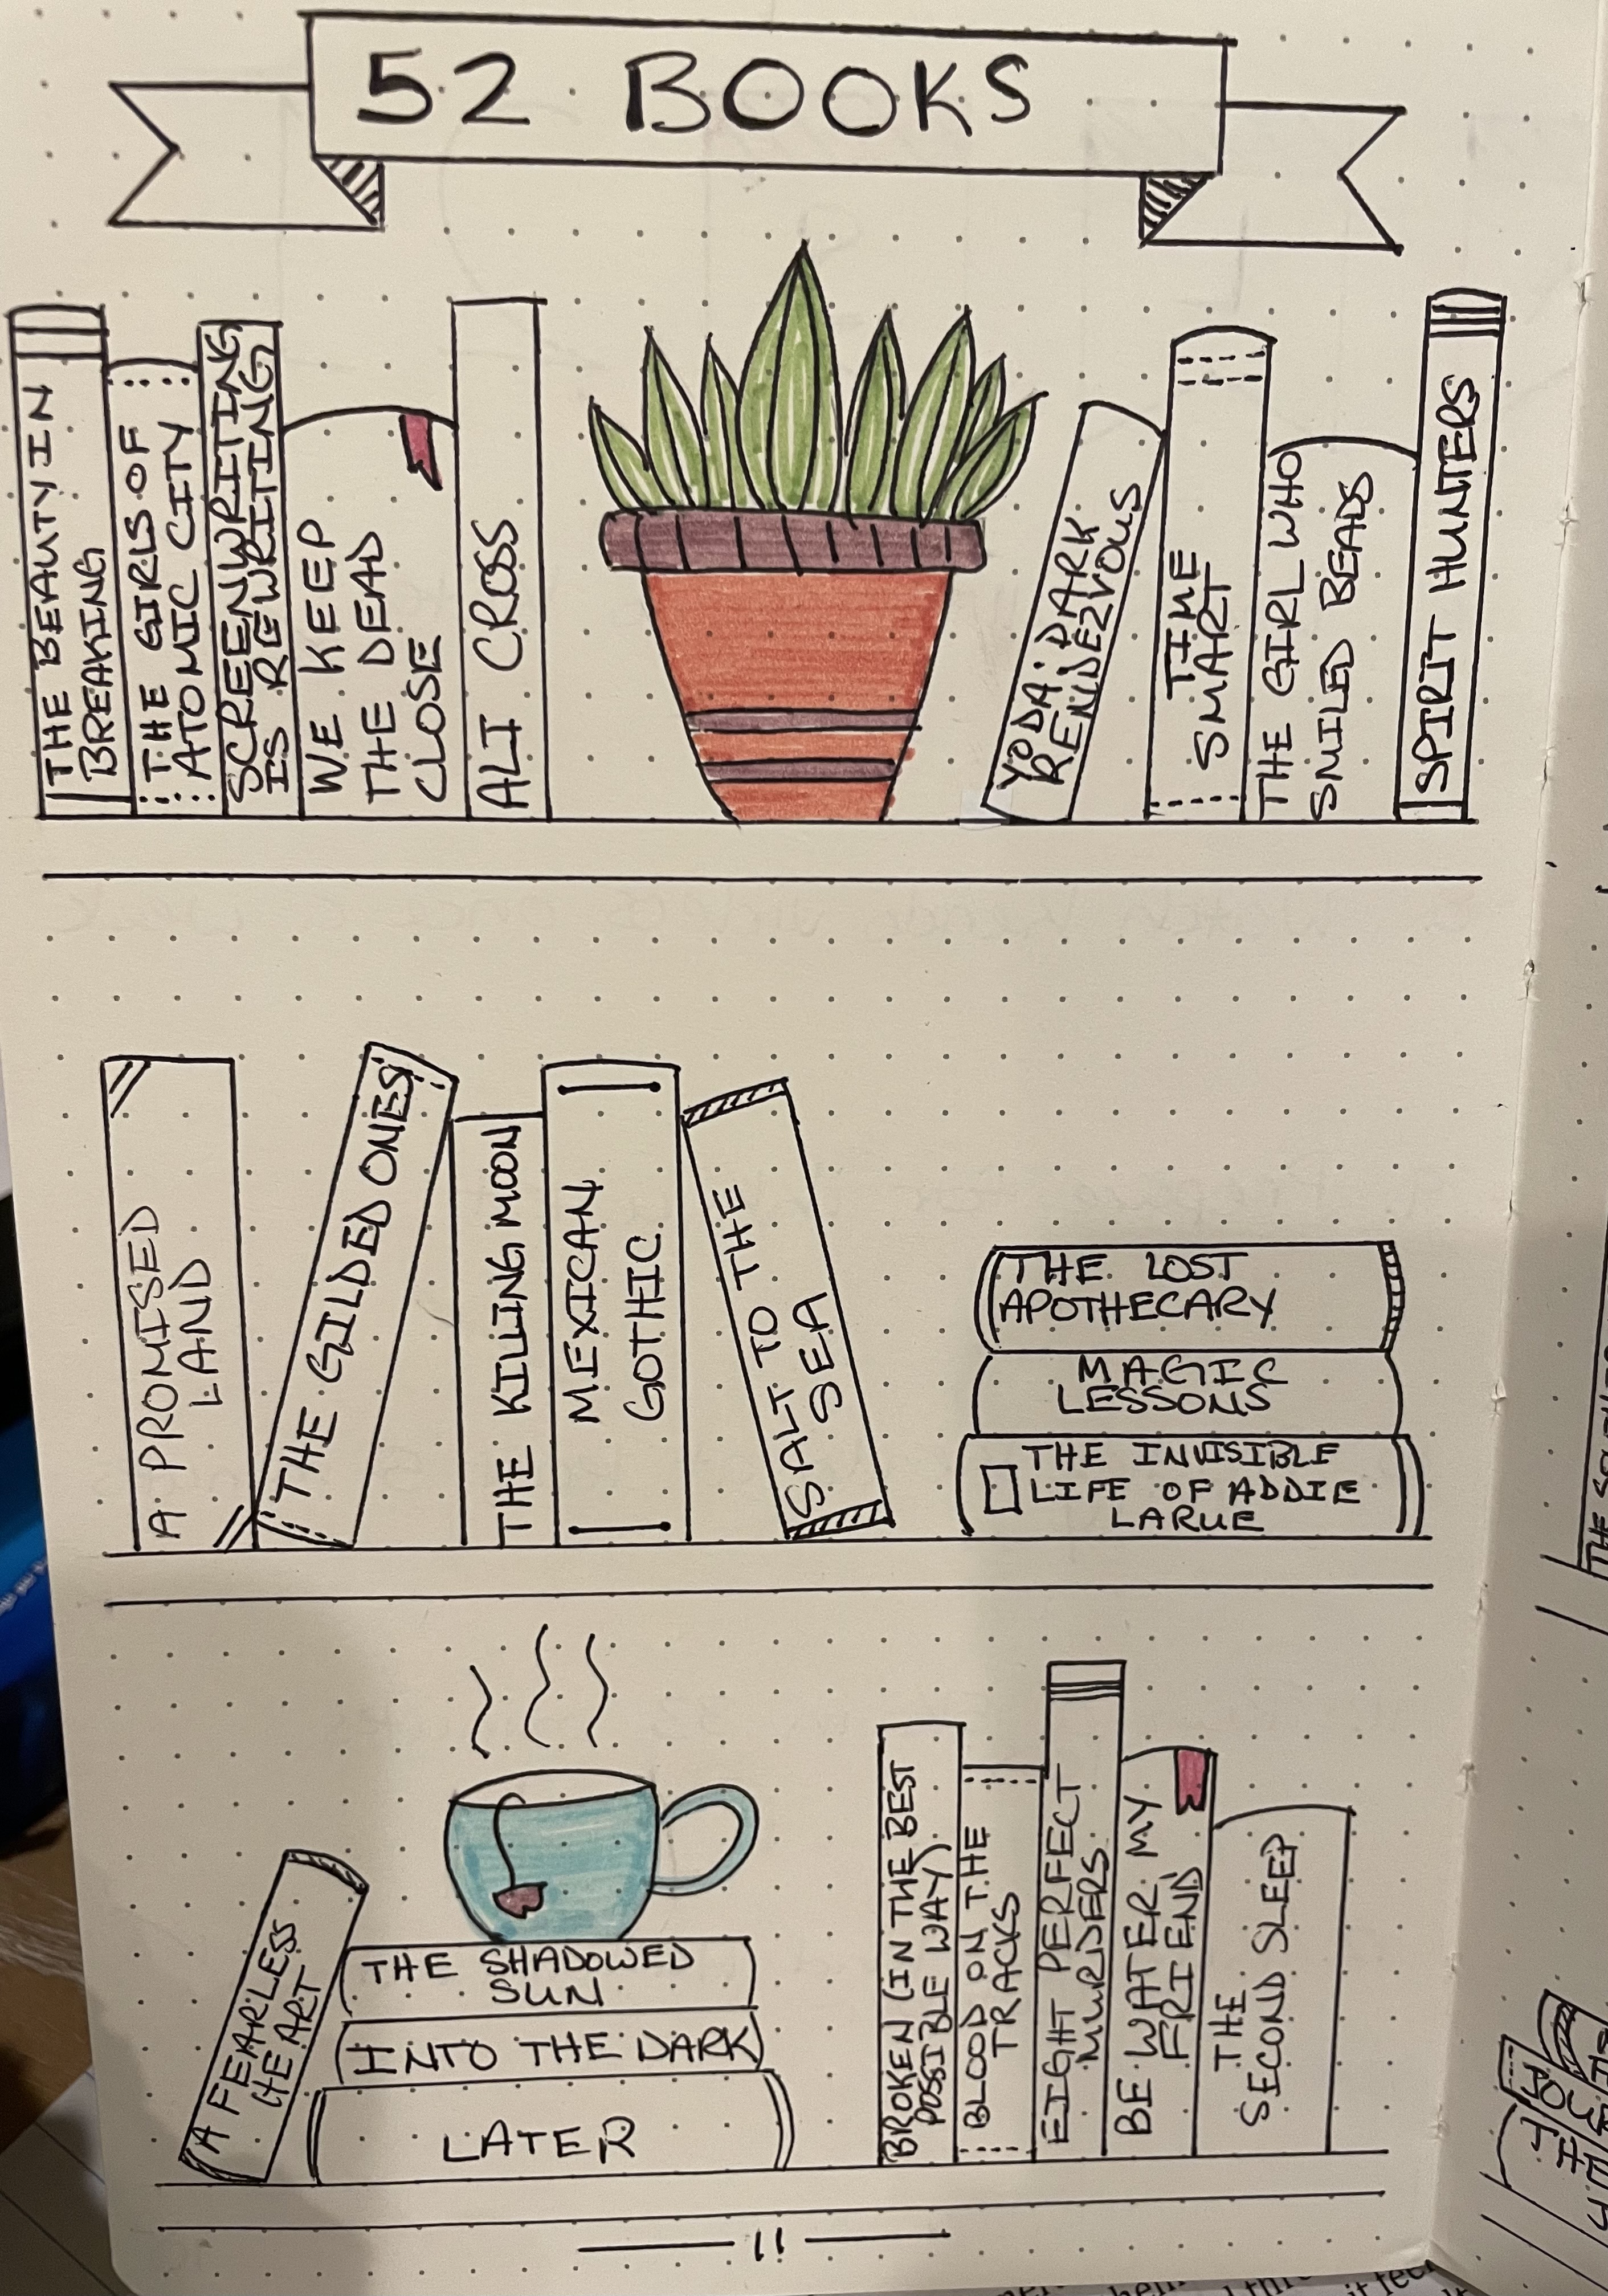 52 BOOKS
THE BEAUTY IN
BREAKING
THE GIRLS OF
ATOMIC CITY
SCREENWRITING
IS REWRITING
WE KEEP
THE DEAD
CLOSE
ALI CROSS
YODA: DARK
RENDEZVOUS
TIME
SMART
THE GIRL WHO
SMILED BEADS
SPIRIT HUNTERS
A PROMISED
LAND
THE GILDED ONES
THE KILLING MOON
MEXICAN
GOTHIC
SALT TO THE
SEA
THE LOST
APOTHECARY
MAGIC
LESSONS
THE INVISIBLE
LIFE OF ADDIE
LARUE
A FEARLESS
HEART
THE SHADOWED
SUN
INTO THE DARK
LATER
BROKEN (IN THE BEST
POSSIBLE WAY)
BLOOD ON THE
TRACKS
EIGHT PERFECT
MURDERS
BE WATER MY
FRIEND
THE
SECOND SLEEP
11